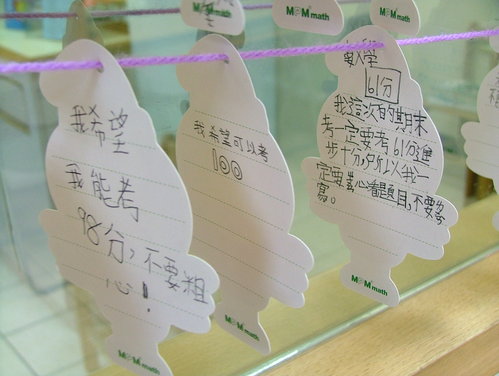 M@M math
M@M math
我希望
我能考
98分,不要粗
心!
M@M math
我希望可以考
100
M@M math
61分
我這次的期末
考一定要考61分進
步十分,所以我一
定要當心看題目,不要忽
寫。
M@M math